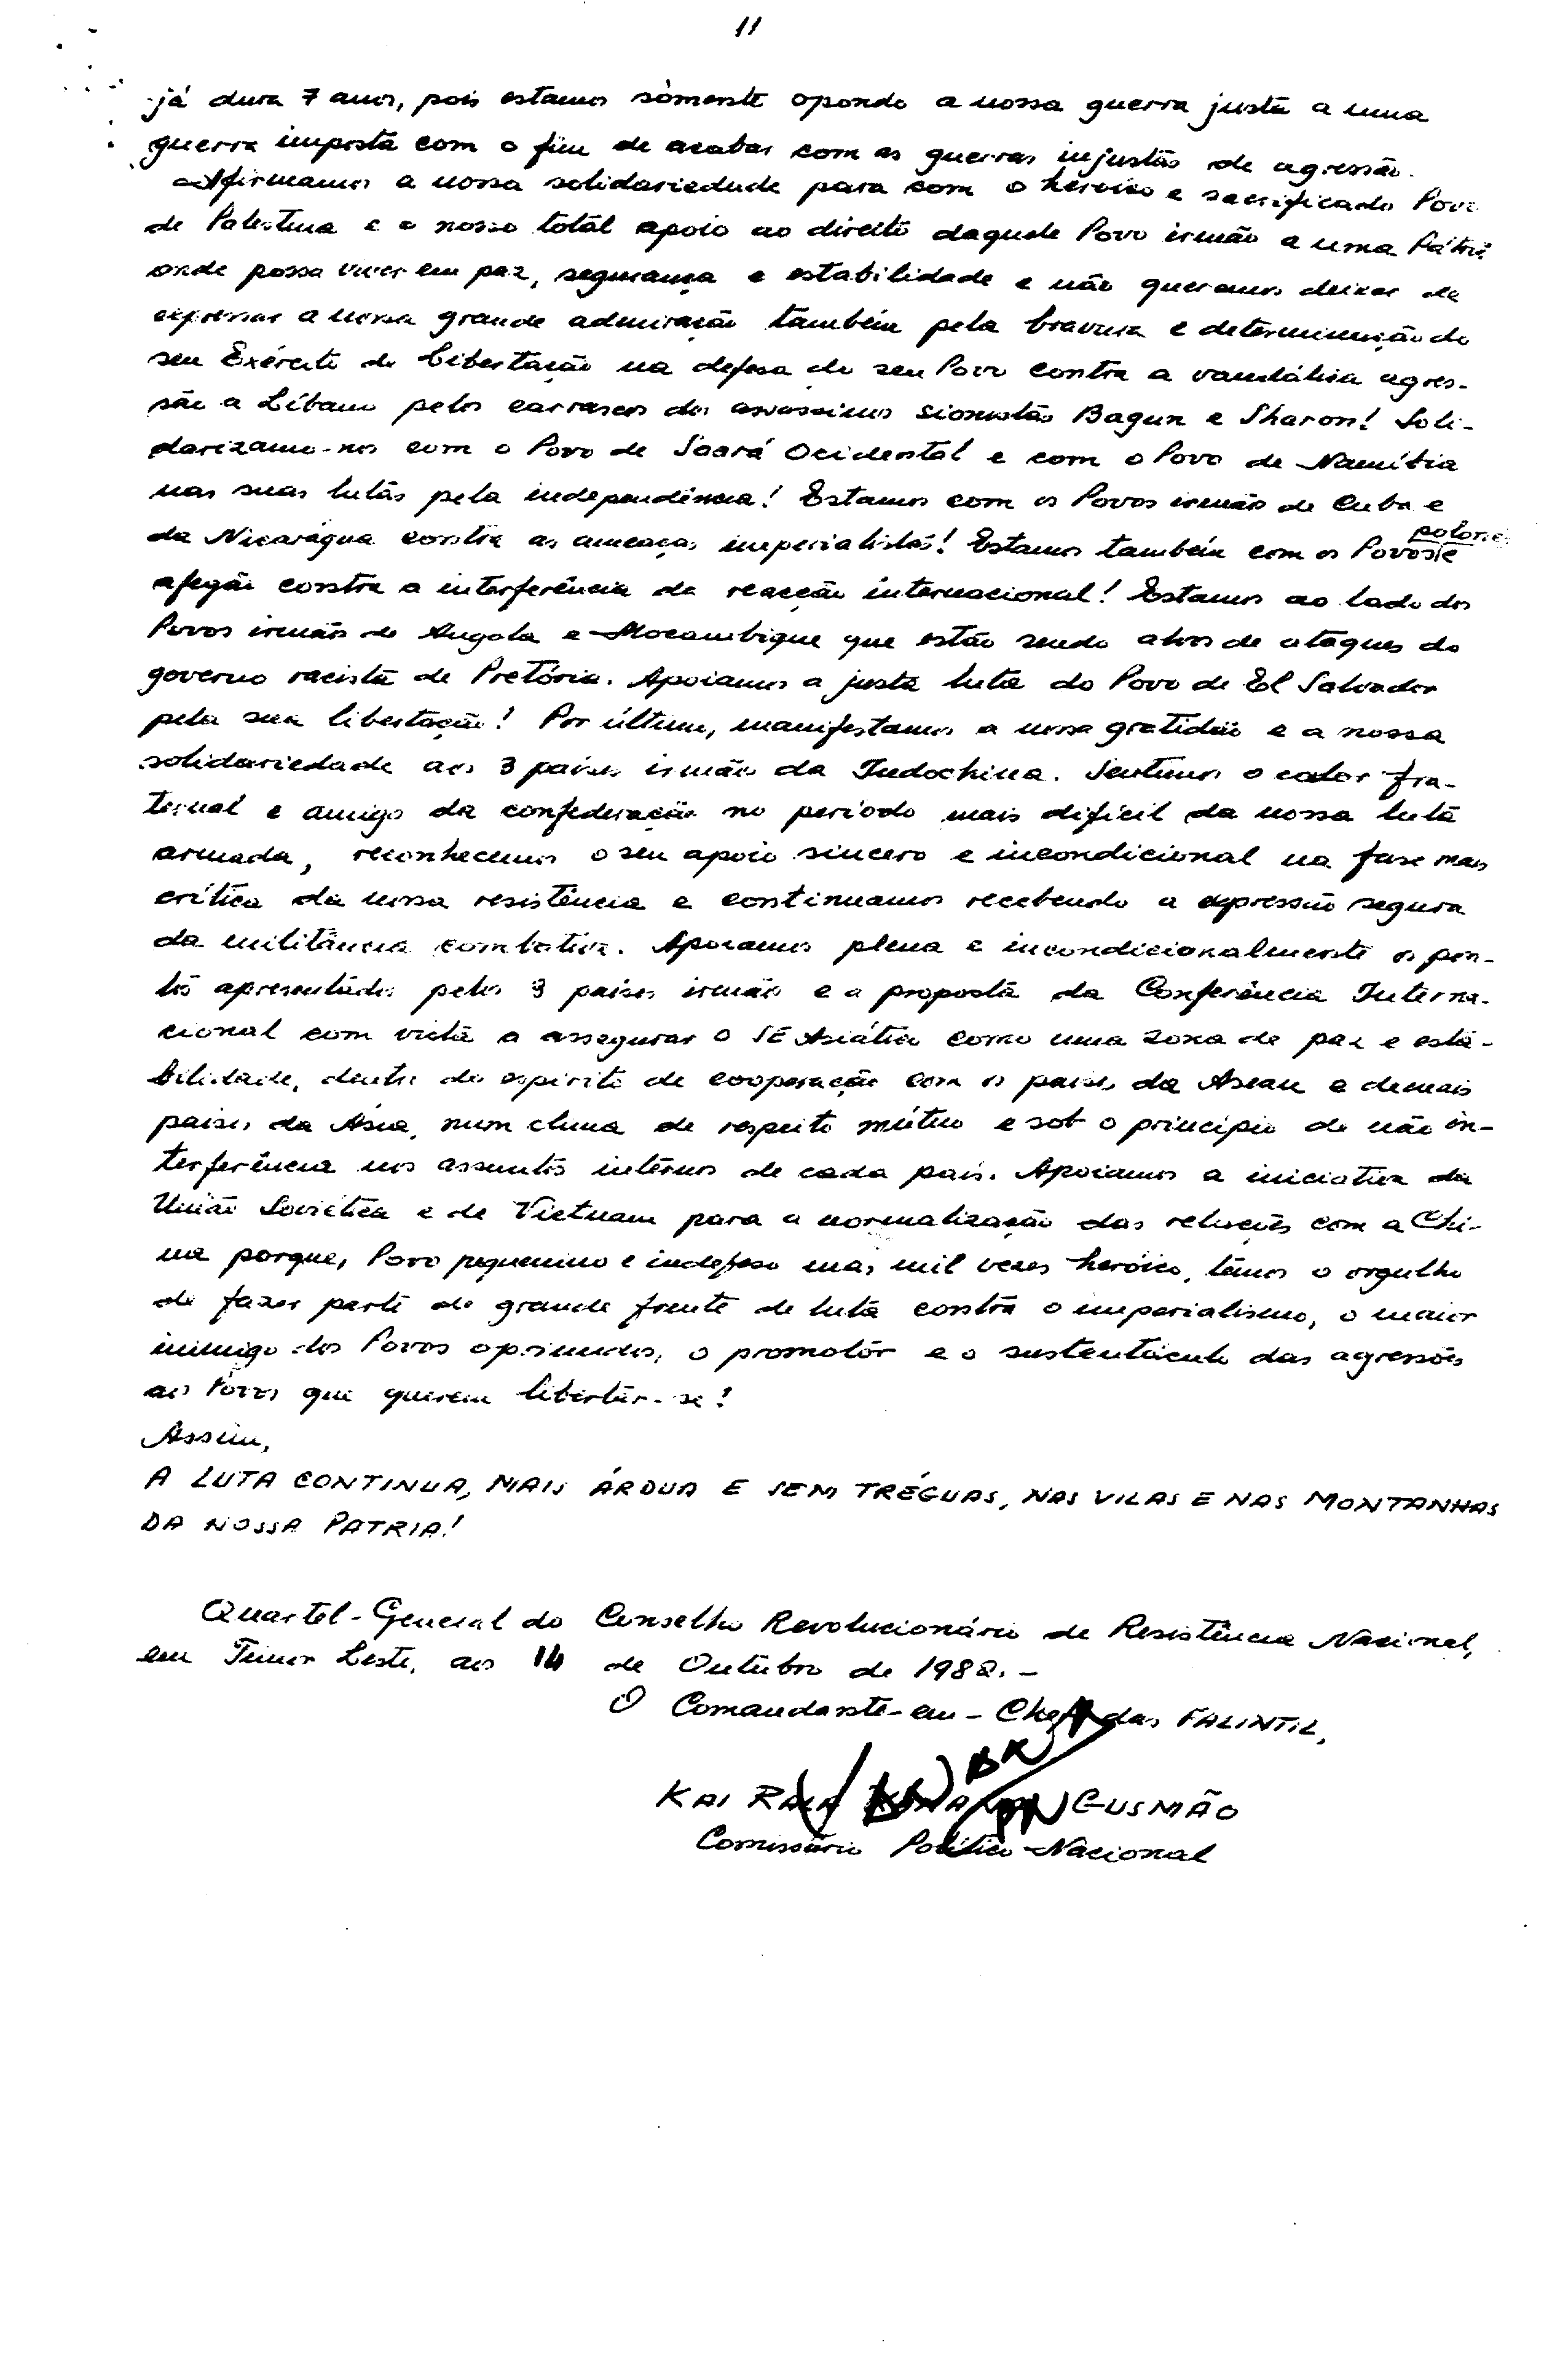 11
já dura 7 anos, pois estamos sòmente opondo a nossa guerra justa a uma
guerra imposta com o fim de acabar com as guerras injustas de agressão.
Afirmamos a nossa solidariedade para com o heroico e sacrificado Povo
de Palestina e o nosso total apoio ao direito daquele Povo irmão a uma Pátria
onde possa viver em paz, segurança e estabilidade e não queremos deixar de
expressar a nossa grande admiração também pela bravura e determinação do
seu Exército de Libertação na defesa do seu Povo contra a vandálica agres-
são a Líbano pelos carrascos dos assassinos sionistas Bagun e Sharon! Soli-
darizamo-nos com o Povo de Saará Ocidental e com o Povo de Namíbia
nas suas lutas pela independência! Estamos com os Povos irmãos de Cuba e
da Nicarágua contra as ameaças imperialistas! Estamos também com os Povos polone e
afegão contra a interferência da reacção internacional! Estamos ao lado dos
Povos irmãos de Angola e Moçambique que estão sendo alvos de ataques do
governo racista de Pretória. Apoiamos a justa luta do Povo de El Salvador
pela sua libertação! Por último, manifestamos a nossa gratidão e a nossa
solidariedade aos 3 países irmãos da Indochina. Sentimos o calor fra-
ternal e amigo da confederação no período mais difícil da nossa luta
armada, reconhecemos o seu apoio sincero e incondicional na fase mais
crítica da nossa resistência e continuamos recebendo a expressão segura
da militância combativa. Apoiamos plena e incondicionalmente os pon-
tos apresentados pelos 3 países irmãos e a proposta da Conferência Interna-
cional com vista a assegurar o SE Asiático como uma zona de paz e esta-
bilidade, dentro do espírito de cooperação com os países da Asean e demais
países da Ásia, num clima de respeito mútuo e sob o princípio de não in-
terferência nos assuntos internos de cada país. Apoiamos a iniciativa da
União Soviética e de Vietnam para a normalização das relações com a Chi-
na porque, Povo pequenino e indefeso mas mil vezes heróico, temos o orgulho
de fazer parte da grande frente de luta contra o imperialismo, o maior
inimigo dos Povos oprimidos, o promotor e o sustentáculo das agressões
aos Povos que querem libertar-se!
Assim,
A LUTA CONTINUA, MAIS ÁRDUA E SEM TRÉGUAS, NAS VILAS E NAS MONTANHAS
DA NOSSA PATRIA!
Quartel-General do Conselho Revolucionário de Resistência Nacional,
em Timor Leste, aos 14 de Outubro de 1982.-
O Comandante-em-Chefe das FALINTIL,
KAI RALA XANANA GUSMÃO
Comissário Político Nacional